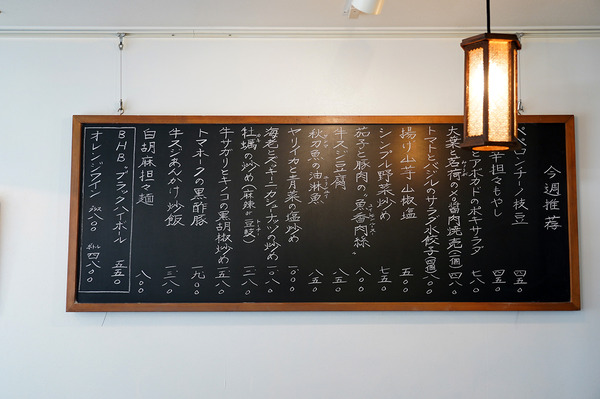 今週推薦
ペペロンチーノ枝豆 四五〇
辛担々もやし 四五〇
アボカドのポキサラダ 七八〇
大葉と茗荷の 醤肉焼売(二個) 四八〇
トマトとバジルのサラダ水餃子(四個)
揚げ山芋 山椒塩 五五〇
シンプル野菜炒め 七五〇
茄子と豚肉の"魚香肉絲" 八五〇
牛スジ豆腐 八五〇
秋刀魚の油淋魚 八五〇
ヤリイカと青菜の塩炒め 一〇八〇
海老とズッキーニカシューナッツの炒め 一〇八〇
牡蠣の炒め(麻辣 or 豆鼓) 一二八〇
牛サガリとキノコの黒胡椒炒め 一五八〇
トマホークの黒酢豚 一九八〇
牛スジあんかけ炒飯 一三八〇
白胡麻担々麺 八〇〇
BHB.ブラックハイボール 五五〇
オレンジワイン グラス 八〇〇 ボトル 四八〇〇